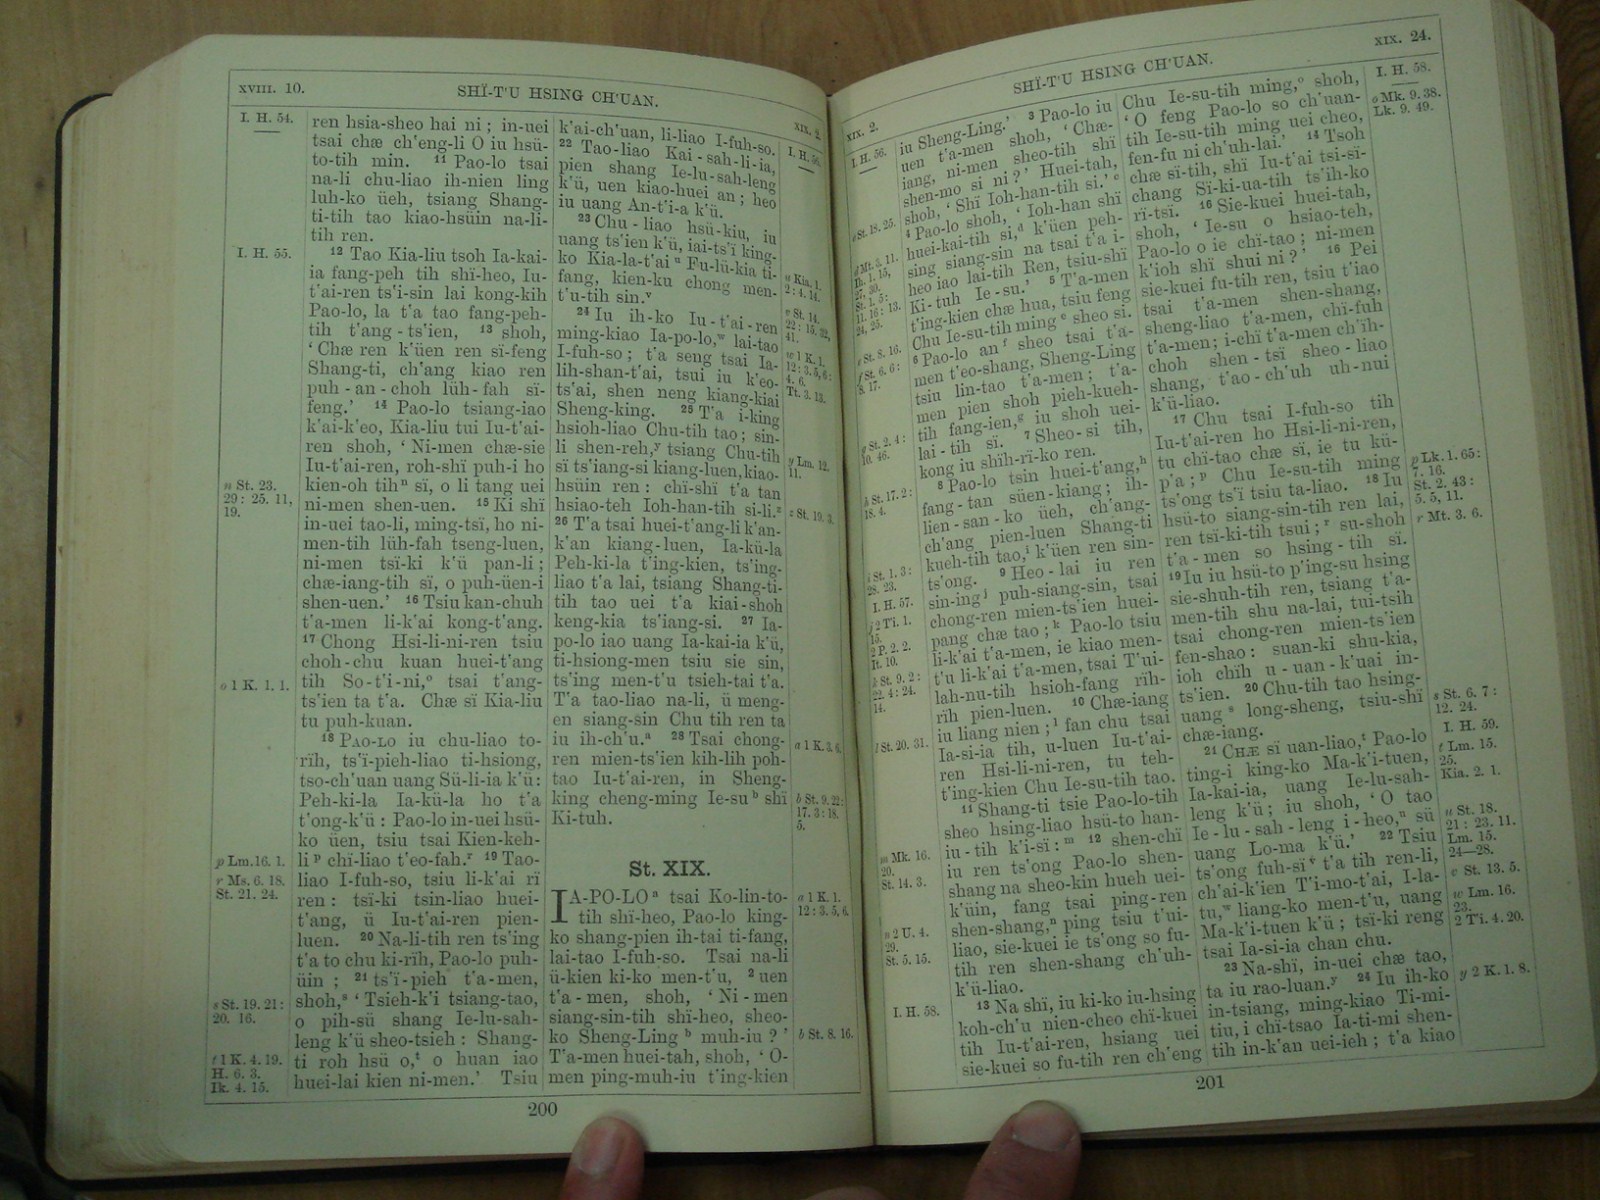 XVIII. 10.
SHÏ-T'U HSING CH'UAN.
XIX. 2.
I. H. 54.
ren hsia-sheo hai ni; in-uei
tsai chæ ch'eng-li O iu hsü-
to-tih min. 11 Pao-lo tsai
na-li chu-liao ih-nien ling
luh-ko üeh, tsiang Shang-
ti-tih tao kiao-hsüin na-li-
tih ren.
I. H. 55.
12 Tao Kia-liu tsoh Ia-kai-
ia fang-peh tih shï-heo, Iu-
t'ai-ren ts'i-sin lai kong-kih
Pao-lo, la t'a tao fang-peh-
tih t'ang-ts'ien, 13 shoh,
'Chæ ren k'üen ren sï-feng
Shang-ti, ch'ang kiao ren
puh-an-choh lüh-fah sï-
feng.' 14 Pao-lo tsiang-iao
k'ai-k'eo, Kia-liu tui Iu-t'ai-
ren shoh, 'Ni-men chæ-sie
Iu-t'ai-ren, roh-shï puh-i ho
kien-oh tih n sï, o li tang uei
ni-men shen-uen. 15 Ki shï
in-uei tao-li, ming-tsï, ho ni-
men-tih lüh-fah tseng-luen,
ni-men tsï-ki k'ü pan-li;
chæ-iang-tih sï, o puh-üen-i
shen-uen.' 16 Tsiu kan-chuh
t'a-men li-k'ai kong-t'ang.
17 Chong Hsi-li-ni-ren tsiu
choh-chu kuan huei-t'ang
tih So-t'i-ni,o tsai t'ang-
ts'ien ta t'a. Chæ sï Kia-liu
tu puh-kuan.
18 PAO-LO iu chu-liao to-
rïh, ts'ï-pieh-liao ti-hsiong,
tso-ch'uan uang Sü-li-ia k'ü:
Peh-ki-la Ia-kü-la ho t'a
t'ong-k'ü: Pao-lo in-uei hsü-
ko üen, tsiu tsai Kien-keh-
li p chï-liao t'eo-fah.r 19 Tao-
liao I-fuh-so, tsiu li-k'ai rï
ren: tsï-ki tsin-liao huei-
t'ang, ü Iu-t'ai-ren pien-
luen. 20 Na-li-tih ren ts'ing
t'a to chu ki-rïh, Pao-lo puh-
üin; 21 ts'ï-pieh t'a-men,
shoh,s 'Tsieh-k'i tsiang-tao,
o pih-sü shang Ie-lu-sah-
leng k'ü sheo-tsieh: Shang-
ti roh hsü o,t o huan iao
huei-lai kien ni-men.' Tsiu
n St. 23.
29: 25. 11,
19.
o 1 K. 1. 1.
p Lm. 16. 1.
r Ms. 6. 18.
St. 21. 24.
s St. 19. 21:
20. 16.
t 1 K. 4. 19.
H. 6. 3.
Ik. 4. 15.
k'ai-ch'uan, li-liao I-fuh-so.
22 Tao-liao Kai-sah-li-ia,
pien shang Ie-lu-sah-leng
k'ü, uen kiao-huei an; heo
iu uang An-t'i-a k'ü.
23 Chu-liao hsü-kiu, iu
uang ts'ien k'ü, iai-ts'ï king-
ko Kia-la-t'ai u Fu-lü-kia ti-
fang, kien-ku chong men-
t'u-tih sin.v
24 Iu ih-ko Iu-t'ai-ren
ming-kiao Ia-po-lo,w lai-tao
I-fuh-so; t'a seng tsai Ia-
lih-shan-t'ai, tsui iu k'eo-
ts'ai, shen neng kiang-kiai
Sheng-king. 25 T'a i-king
hsioh-liao Chu-tih tao; sin-
li shen-reh,y tsiang Chu-tih
sï ts'iang-si kiang-luen, kiao-
hsüin ren: chï-shï t'a tan
hsiao-teh Ioh-han-tih si-li.z
26 T'a tsai huei-t'ang-li k'an-
k'an kiang-luen, Ia-kü-la
Peh-ki-la t'ing-kien, ts'ing-
liao t'a lai, tsiang Shang-ti-
tih tao uei t'a kiai-shoh
keng-kia ts'iang-si. 27 Ia-
po-lo iao uang Ia-kai-ia k'ü,
ti-hsiong-men tsiu sie sin,
ts'ing men-t'u tsieh-tai t'a.
T'a tao-liao na-li, ü meng-
en siang-sin Chu tih ren ta
iu ih-ch'u.a 28 Tsai chong-
ren mien-ts'ien kih-lih poh-
tao Iu-t'ai-ren, in Sheng-
king cheng-ming Ie-su b shï
Ki-tuh.
St. XIX.
IA-PO-LO a tsai Ko-lin-to-
tih shï-heo, Pao-lo king-
ko shang-pien ih-tai ti-fang,
lai-tao I-fuh-so. Tsai na-li
ü-kien ki-ko men-t'u, 2 uen
t'a-men, shoh, 'Ni-men
siang-sin-tih shï-heo, sheo-
ko Sheng-Ling b muh-iu?'
T'a-men huei-tah, shoh, 'O-
men ping-muh-iu t'ing-kien
I. H. 56.
u Kia. 1.
2: 4. 14.
v St. 14.
22: 15. 32,
41.
w 1 K. 1.
12: 3. 5, 6:
4. 6.
Tt. 3. 13.
y Lm. 12.
11.
z St. 19. 3.
a 1 K. 3. 6.
b St. 9. 22:
17. 3: 18.
5.
a 1 K. 1.
12: 3. 5, 6.
b St. 8. 16.
200
XIX. 2.
SHÏ-T'U HSING CH'UAN.
XIX. 24.
I. H. 56.
c St. 18. 25.
d Mt. 3. 11.
Ih. 1. 15,
27, 30.
St. 1. 5:
11. 16: 13.
24, 25.
e St. 8. 16.
f St. 6. 6:
8. 17.
g St. 2. 4:
10. 46.
h St. 17. 2:
18. 4.
i St. 1. 3:
28. 23.
I. H. 57.
j 2 Ti. 1.
15.
2 P. 2. 2.
It. 10.
k St. 9. 2:
22. 4: 24.
14.
l St. 20. 31.
m Mk. 16.
20.
St. 14. 3.
n 2 U. 4.
29.
St. 5. 15.
I. H. 58.
iu Sheng-Ling.' 3 Pao-lo iu
uen t'a-men shoh, 'Chæ-
iang, ni-men sheo-tih shï
shen-mo si ni?' Huei-tah,
shoh, 'Shï Ioh-han-tih si.' c
4 Pao-lo shoh, 'Ioh-han shï
huei-kai-tih si,d k'üen peh-
sing siang-sin na tsai t'a i-
heo iao lai-tih Ren, tsiu-shï
Ki-tuh Ie-su.' 5 T'a-men
t'ing-kien chæ hua, tsiu feng
Chu Ie-su-tih ming e sheo si.
6 Pao-lo an f sheo tsai t'a-
men t'eo-shang, Sheng-Ling
tsiu lin-tao t'a-men; t'a-
men pien shoh pieh-kueh-
tih fang-ien,g iu shoh uei-
lai-tih sï. 7 Sheo-si tih,
kong iu shïh-rï-ko ren.
8 Pao-lo tsin huei-t'ang,h
fang-tan süen-kiang; ih-
lien-san-ko üeh, ch'ang-
ch'ang pien-luen Shang-ti
kueh-tih tao,i k'üen ren sin-
ts'ong. 9 Heo-lai iu ren
sin-ing j puh-siang-sin, tsai
chong-ren mien-ts'ien huei-
pang chæ tao;k Pao-lo tsiu
li-k'ai t'a-men, ie kiao men-
t'u li-k'ai t'a-men, tsai T'ui-
lah-nu-tih hsioh-fang rïh-
rïh pien-luen. 10 Chæ-iang
iu liang nien;l fan chu tsai
Ia-si-ia tih, u-luen Iu-t'ai-
ren Hsi-li-ni-ren, tu teh-
t'ing-kien Chu Ie-su-tih tao.
11 Shang-ti tsie Pao-lo-tih
sheo hsing-liao hsü-to han-
iu-tih k'i-sï:m 12 shen-chï
iu ren ts'ong Pao-lo shen-
shang na sheo-kin hueh uei-
k'üin, fang tsai ping-ren
shen-shang,n ping tsiu t'ui-
liao, sie-kuei ie ts'ong so fu-
tih ren shen-shang ch'uh-
k'ü-liao.
13 Na shï, iu ki-ko iu-hsing
koh-ch'u nien-cheo chï-kuei
tih Iu-t'ai-ren, hsiang uei
sie-kuei so fu-tih ren ch'eng
Chu Ie-su-tih ming,o shoh,
'O feng Pao-lo so ch'uan-
tih Ie-su-tih ming uei cheo,
fen-fu ni ch'uh-lai.' 14 Tsoh
chæ sï-tih, shï Iu-t'ai tsi-sï-
chang Sï-ki-ua-tih ts'ih-ko
rï-tsï. 15 Sie-kuei huei-tah,
shoh, 'Ie-su o hsiao-teh,
Pao-lo o ie chï-tao; ni-men
k'ioh shï shui ni?' 16 Pei
sie-kuei fu-tih ren, tsiu t'iao
tsai t'a-men shen-shang,
sheng-liao t'a-men, chï-fuh
t'a-men; i-chï t'a-men ch'ïh-
choh shen-tsï sheo-liao
shang, t'ao-ch'uh uh-nui
k'ü-liao.
17 Chu tsai I-fuh-so tih
Iu-t'ai-ren ho Hsi-li-ni-ren,
tu chï-tao chæ sï, ie tu kü-
p'a;p Chu Ie-su-tih ming
ts'ong ts'ï tsiu ta-liao. 18 Iu
hsü-to siang-sin-tih ren lai,
ren tsï-ki-tih tsui;r su-shoh
t'a-men so hsing-tih sï.
19 Iu iu hsü-to p'ing-su hsing
sie-shuh-tih ren, tsiang t'a-
men-tih shu na-lai, tui-tsih
tsai chong-ren mien-ts'ien
fen-shao: suan-ki shu-kia,
ioh chïh u-uan-k'uai in-
ts'ien. 20 Chu-tih tao hsing-
uang s long-sheng, tsiu-shï
chæ-iang.
21 CHÆ sï uan-liao,t Pao-lo
ting-i king-ko Ma-k'i-tuen,
Ia-kai-ia, uang Ie-lu-sah-
leng k'ü; iu shoh, 'O tao
Ie-lu-sah-leng i-heo,u sü
uang Lo-ma k'ü.' 22 Tsiu
ts'ong fuh-sï v t'a tih ren-li,
ch'ai-k'ien T'i-mo-t'ai, I-la-
tu,w liang-ko men-t'u, uang
Ma-k'i-tuen k'ü; tsï-ki reng
tsai Ia-si-ia chan chu.
23 Na-shï, in-uei chæ tao,
ta iu rao-luan.y 24 Iu ih-ko
in-tsiang, ming-kiao Ti-mi-
tiu, i chï-tsao Ia-ti-mi shen-
tih in-k'an uei-ieh; t'a kiao
I. H. 58.
o Mk. 9. 38.
Lk. 9. 49.
p Lk. 1. 65:
7. 16.
St. 2. 43:
5. 5, 11.
r Mt. 3. 6.
s St. 6. 7:
12. 24.
I. H. 59.
t Lm. 15.
25.
Kia. 2. 1.
u St. 18.
21: 23. 11.
Lm. 15.
24—28.
v St. 13. 5.
w Lm. 16.
23.
2 Ti. 4. 20.
y 2 K. 1. 8.
201